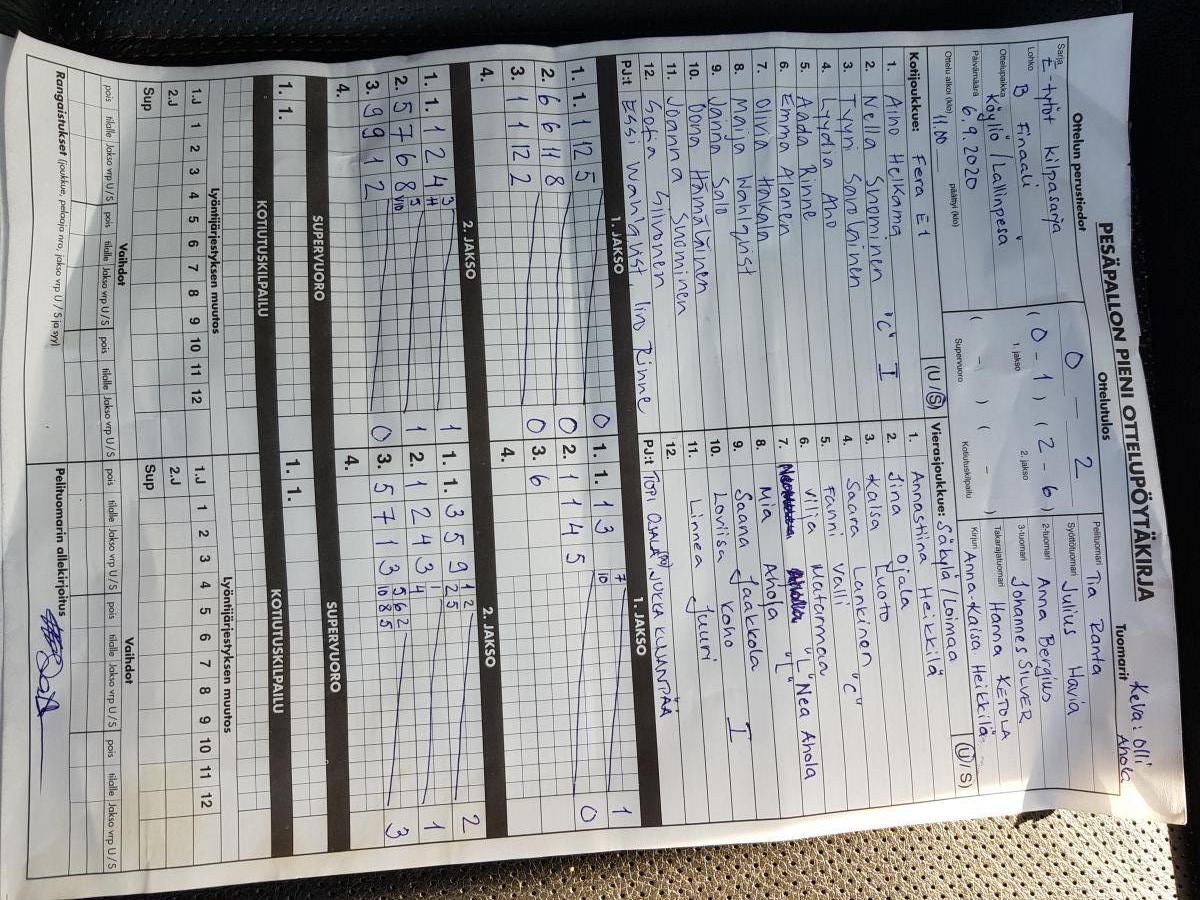 PESÄPALLON PIENI OTTELUPÖYTÄKIRJA
Keva: Olli
Ahola
Ottelun perustiedot
Ottelutulos
Tuomarit
Sarja
E-tytöt kilpasarja
Lohko
B Finaali
Ottelupaikka
Köyliö / Lallinpesä
Päivämäärä
6.9.2020
Ottelu alkoi (klo)
11.00
päättyi (klo)
0 — 2
( 0 - 1 ) ( 2 - 6 )
1. jakso
2. jakso
( - ) ( - )
Supervuoro
Kotiutuskilpailu
Pelituomari
Tia Ranta
Syöttötuomari
Julius Havia
2-tuomari
Anna Bergius
3-tuomari
Johannes SILVER
Takarajatuomari
Hanna KETOLA
Kirjuri
Anna-Kaisa Heikkilä
Kotijoukkue: Fera E1
(U/S)
1. Aino Helkama
2. Nella Suominen "C" I
3. Tyyni Savolainen
4. Lyydia Aho
5. Aada Rinne
6. Emma Alanen
7. Olivia Hakala
8. Maija Wahlqvist
9. Vanna Salo
10. Oona Hämäläinen
11. Joanna Suominen
12. Sofia Siivonen
PJ:t Essi Wahlqvist, Iiro Rinne
Vierasjoukkue: Säkylä/Loimaa
(U/S)
1. Annastiina Heikkilä
2. Iina Ojala
3. Kaisa Luoto
4. Saara Lankinen "C"
5. Fanni Valli
6. Vilja Matanmaa
7. "L" Nea Ahola
8. Mia Ahola "L"
9. Saana Jaakkola
10. Loviisa Koho I
11. Linnea Juuri
12.
PJ:t TOPI OJALA JUKKA KULLANPÄÄ
1. JAKSO
1. 1. 1 12 5 0
2. 6 6 11 8 0
3. 1 1 12 2 0
4.
1. JAKSO
1. 1. 1 3 7 10 1
2. 1 1 4 5 0
3. 6
4.
2. JAKSO
1. 1. 1 2 4 3 4 1
2. 5 7 6 8 5 10 1
3. 9 9 1 2 0
4.
2. JAKSO
1. 1. 3 5 9 1 2 2 5 2
2. 1 2 4 3 1 4 1
3. 5 7 1 3 5 6 2 10 8 5 3
4.
SUPERVUORO
SUPERVUORO
KOTIUTUSKILPAILU
1. 1.
KOTIUTUSKILPAILU
1. 1.
Lyöntijärjestyksen muutos
1.J 1 2 3 4 5 6 7 8 9 10 11 12
2.J
Sup
Lyöntijärjestyksen muutos
1.J 1 2 3 4 5 6 7 8 9 10 11 12
2.J
Sup
Vaihdot
pois tilalle Jakso vrp U / S pois tilalle Jakso vrp U / S pois tilalle Jakso vrp U / S
Vaihdot
pois tilalle Jakso vrp U / S pois tilalle Jakso vrp U / S pois tilalle Jakso vrp U / S
Rangaistukset (joukkue, pelaaja nro, jakso vrp U / S ja syy)
Pelituomarin allekirjoitus